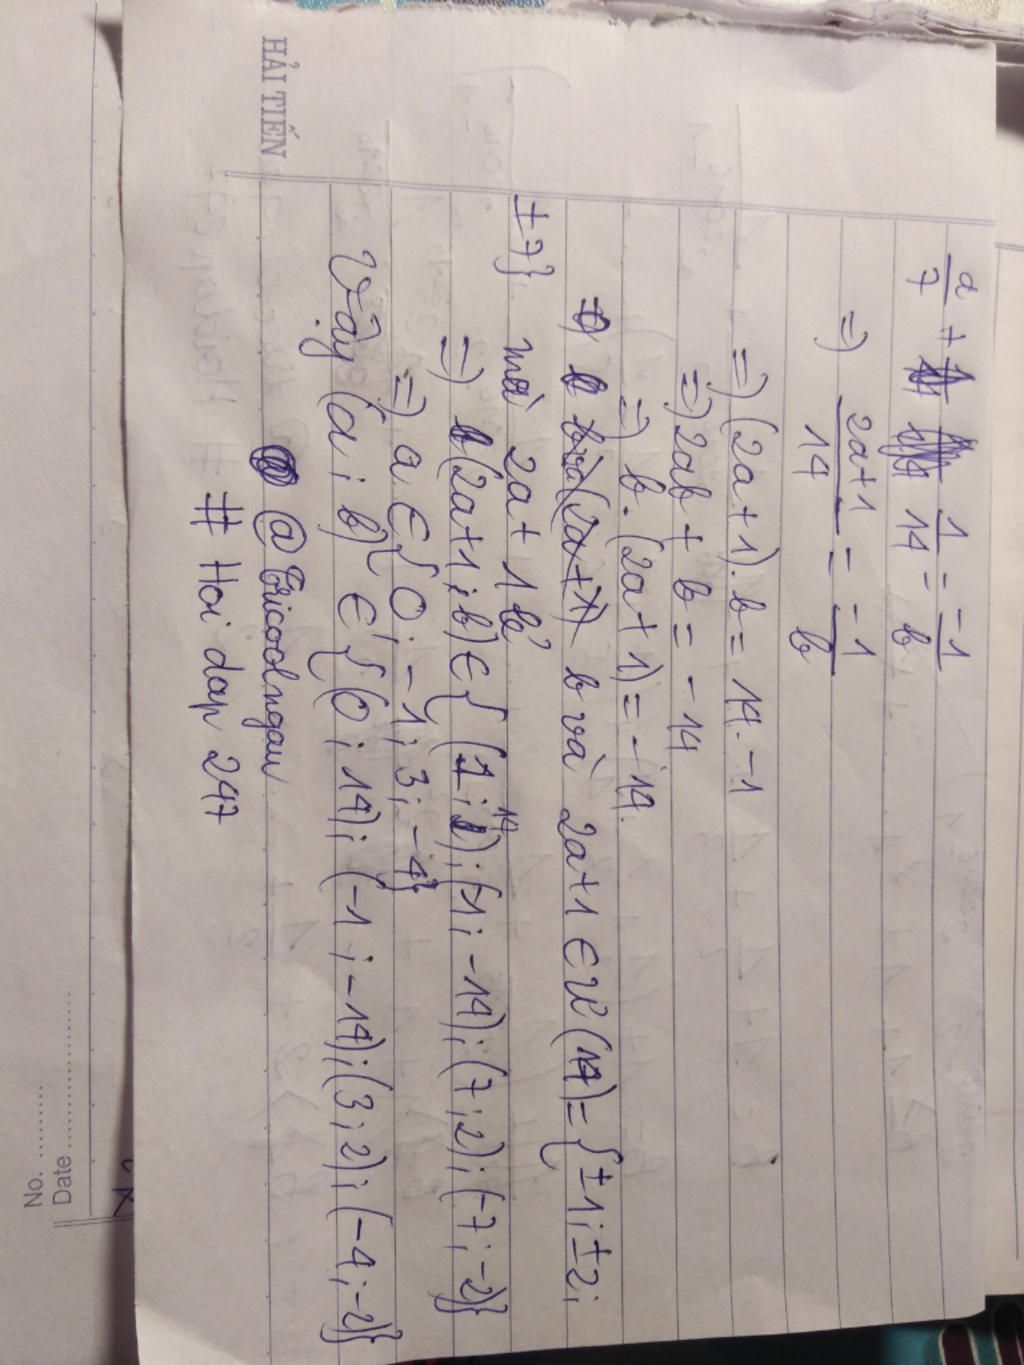 HẢI TIẾN
a/7 + 1/14 = -1/b
=) 2a+1/14 = -1/b
=) (2a+1).b = 14.-1
=) 2ab + b = -14
=) b.(2a+1) = -14.
b và 2a+1 ∈ Ư(14) = {±1; ±2;
±7}. mà 2a+1 lẻ
=) (2a+1; b) ∈ {(1; 14); (-1; -14); (7; 2); (-7; -2)}
=) a ∈ {0; -1; 3; -4}
Vậy (a; b) ∈ {(0; 14); (-1; -14); (3; 2); (-4; -2)}
# Hoi dap 247
No. ........
Date ................